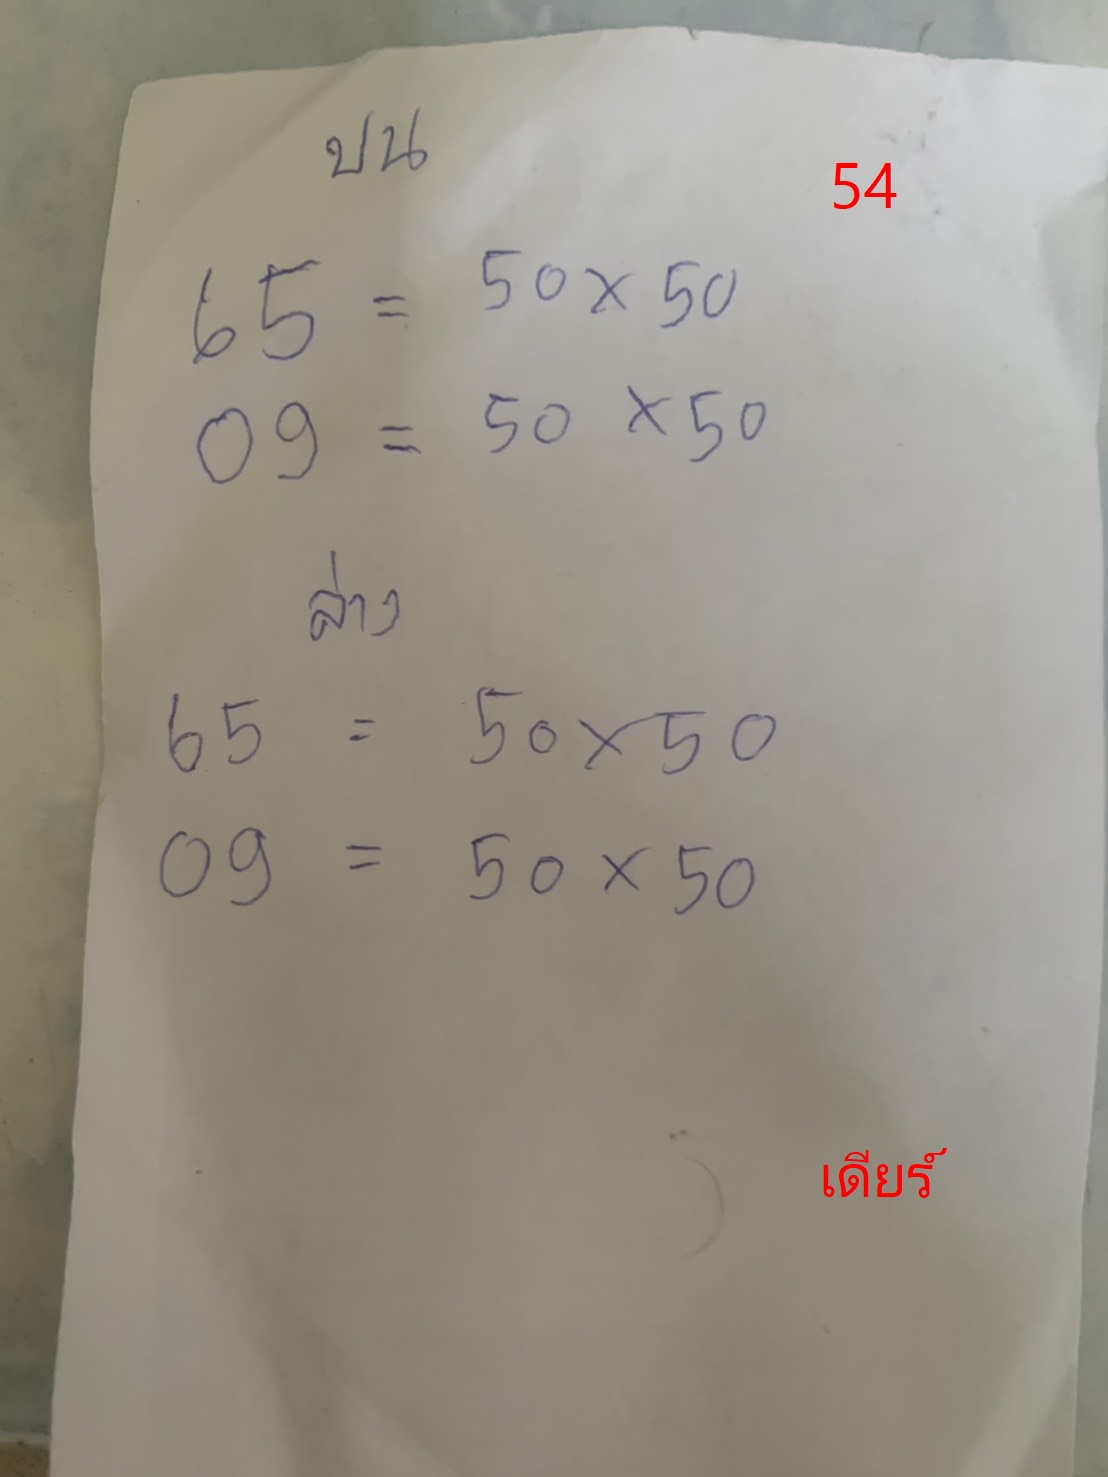 บน
54
65 = 50x50
09 = 50x50
ล่าง
65 = 50x50
09 = 50x50
เดียร์